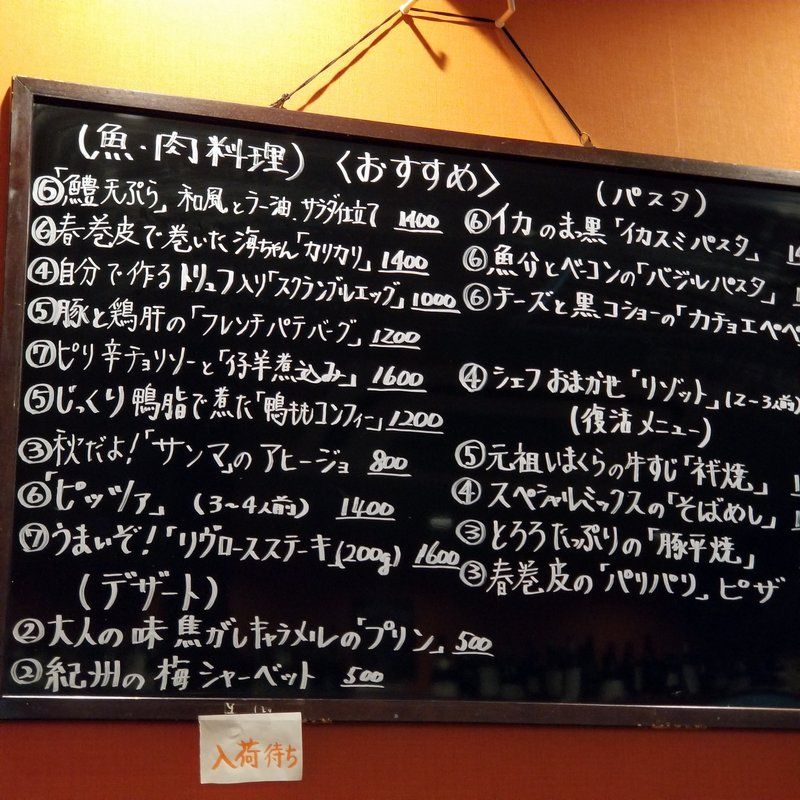 (魚・肉料理) 〈おすすめ〉
⑥「鱧天ぷら」和風とラー油 サラダ仕立て 1400
⑥春巻皮で巻いた海ちゃん「カリカリ」1400
④自分で作るトリュフ入り「スクランブルエッグ」1000
⑤豚と鶏肝の「フレンチパテバーグ」1200
⑦ピリ辛チョリソーと「仔羊煮込み」1600
⑤じっくり鴨脂で煮た「鴨ももコンフィー」1200
③秋だよ!「サンマ」のアヒージョ 800
⑥「ピッツァ」(3〜4人前) 1400
⑦うまいぞ!「リヴロースステーキ」(200g) 1600
(デザート)
②大人の味 焦がしキャラメルの「プリン」500
②紀州の梅シャーベット 500
(パスタ)
⑥イカのまっ黒「イカスミパスタ」
⑥魚介とベーコンの「バジルパスタ」
⑥チーズと黒コショーの「カチョエペペ
④シェフおまかせ「リゾット」(2〜3人前)
(復活メニュー)
⑤元祖いまくらの牛すじ「ネギ焼」
④スペシャルミックスの「そばめし」
③とろろたっぷりの「豚平焼」
③春巻皮の「パリパリ」ピザ
入荷待ち